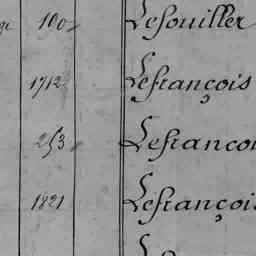 100 Lesouiller
1712 Lefrançois
253 Lefrançoi
1821 Lefrançois